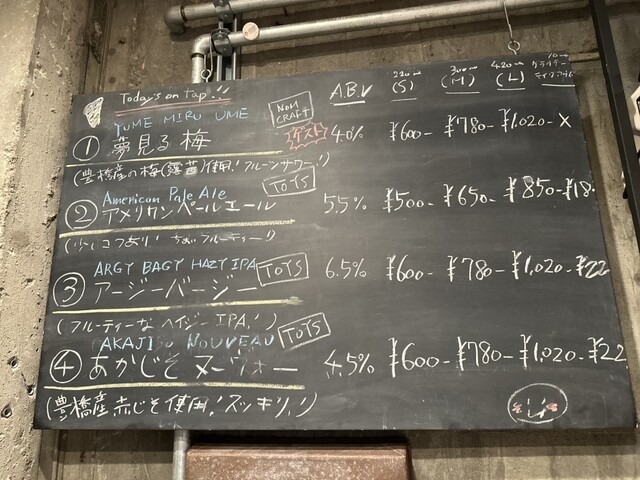 Today's on tap!! ABV 220ml (S) 300ml (M) 420ml (L)
YUME MIRU UME NON CRAFT
① 夢見る梅 ゲスト 4.0% ¥600- ¥780- ¥1,020- X
(豊橋産の梅(露茜)使用!フルーツサワー!)
American Pale Ale TOYS
② アメリカンペールエール 5.5% ¥500- ¥650- ¥850- ¥18
(少しコクあり! ちょいフルーティー!)
ARGY BAGY HAZY IPA TOYS
③ アージーバージー 6.5% ¥600- ¥780- ¥1,020- ¥22
(フルーティーなヘイジーIPA!)
AKAJISO NOUVEAU TOYS
④ あかじそ ヌーヴォー 4.5% ¥600- ¥780- ¥1,020- ¥22
(豊橋産赤じそ使用!スッキリ!)